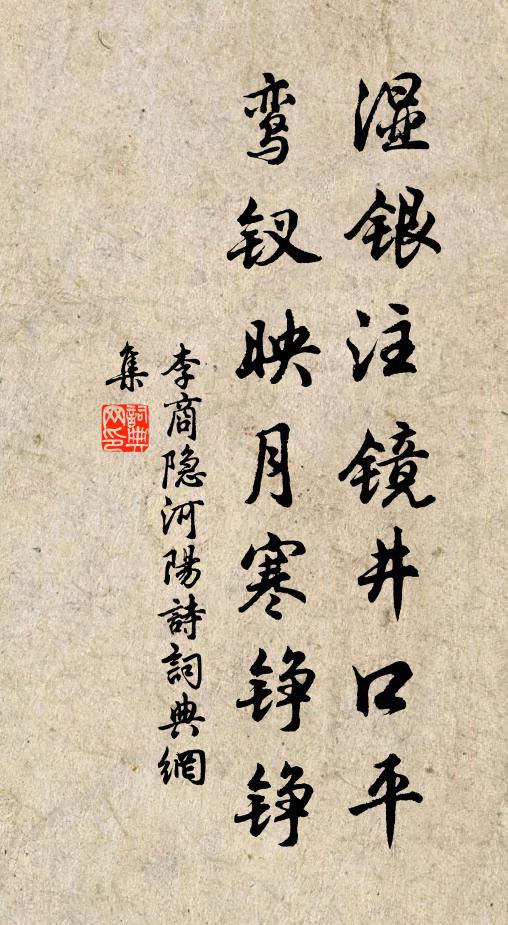 湿银注镜井口平
鸾钗映月寒铮铮
李商隐河陽詩詞典網
集
詞典网印